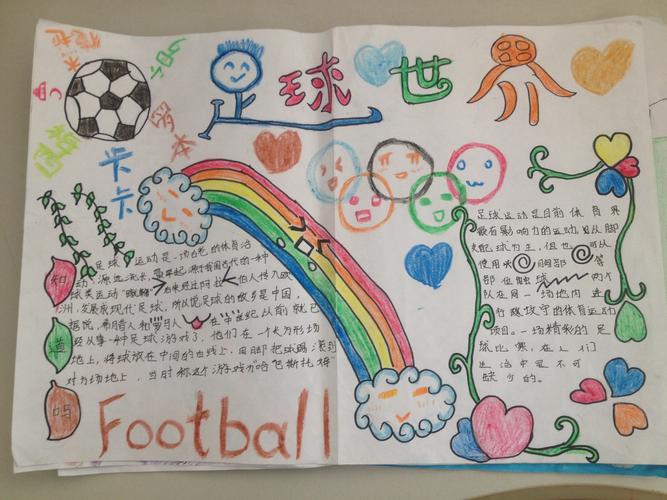 足球世界
卡卡
罗本
足球运动是一场古老的体育活
动,源远流长。最早起源于我国古代的一种
球类运动“蹴鞠”,后来经过阿拉伯人传入欧
洲,发展成现代足球。所以说足球的故乡是中国,
据说,希腊人和罗马人在中世纪以前就已
经从事一种足球游戏了。他们在一个长方形场
地上,将球放在中间的白线上,用脚把球踢滚到
对方场地上,当时称这个游戏为“哈巴斯托姆”
知
道
吗
Football
足球运动是目前体育界
最有影响力的运动,以脚
支配球为主,但也可以
使用头、胸部等
部位触球,两个
队在同一场地内进
行攻守的体育运动
项目。一场精彩的足
球比赛,在人们
生活中是不可
缺少的。